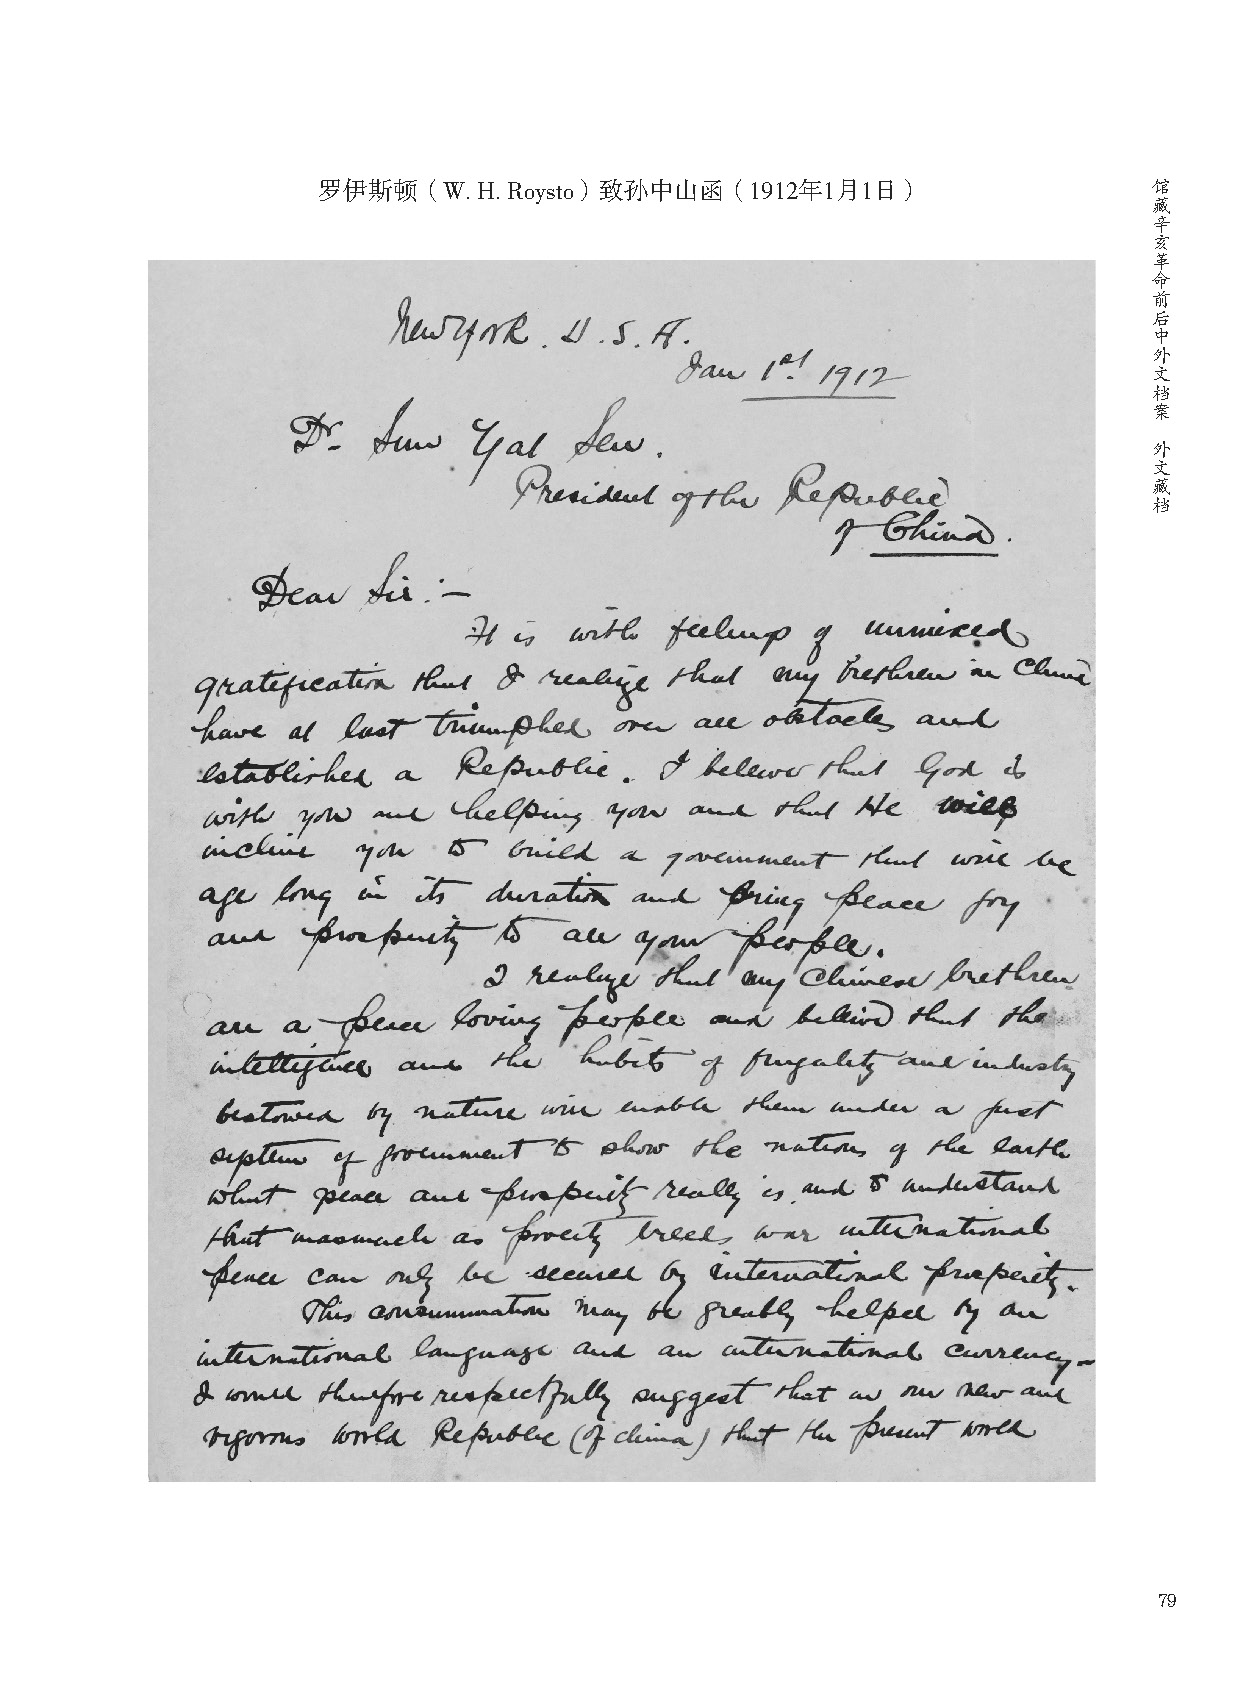 罗伊斯顿（W. H. Roysto）致孙中山函（1912年1月1日）
馆藏辛亥革命前后中外文档案 外文藏档
New York. U.S.A.
Jan 1st. 1912
Dr. Sun Yat Sen.
President of the Republic
of China.
Dear Sir:—
It is with feelings of unmixed
gratification that I realize that my brethren in China
have at last triumphed over all obstacles and
established a Republic. I believe that God is
with you and helping you and that He will
incline you to build a government that will be
age long in its duration and bring peace joy
and prosperity to all your people.
I realize that my Chinese brethren
are a peace loving people and believe that the
intelligence and the habits of frugality and industry
bestowed by nature will enable them under a just
system of government to show the nations of the earth
what peace and prosperity really is and to understand
that inasmuch as poverty breeds war international
peace can only be secured by international prosperity.
This consummation may be greatly helped by an
international language and an international currency—
I would therefore respectfully suggest that in our new and
vigorous world Republic (of China) that the present world
79